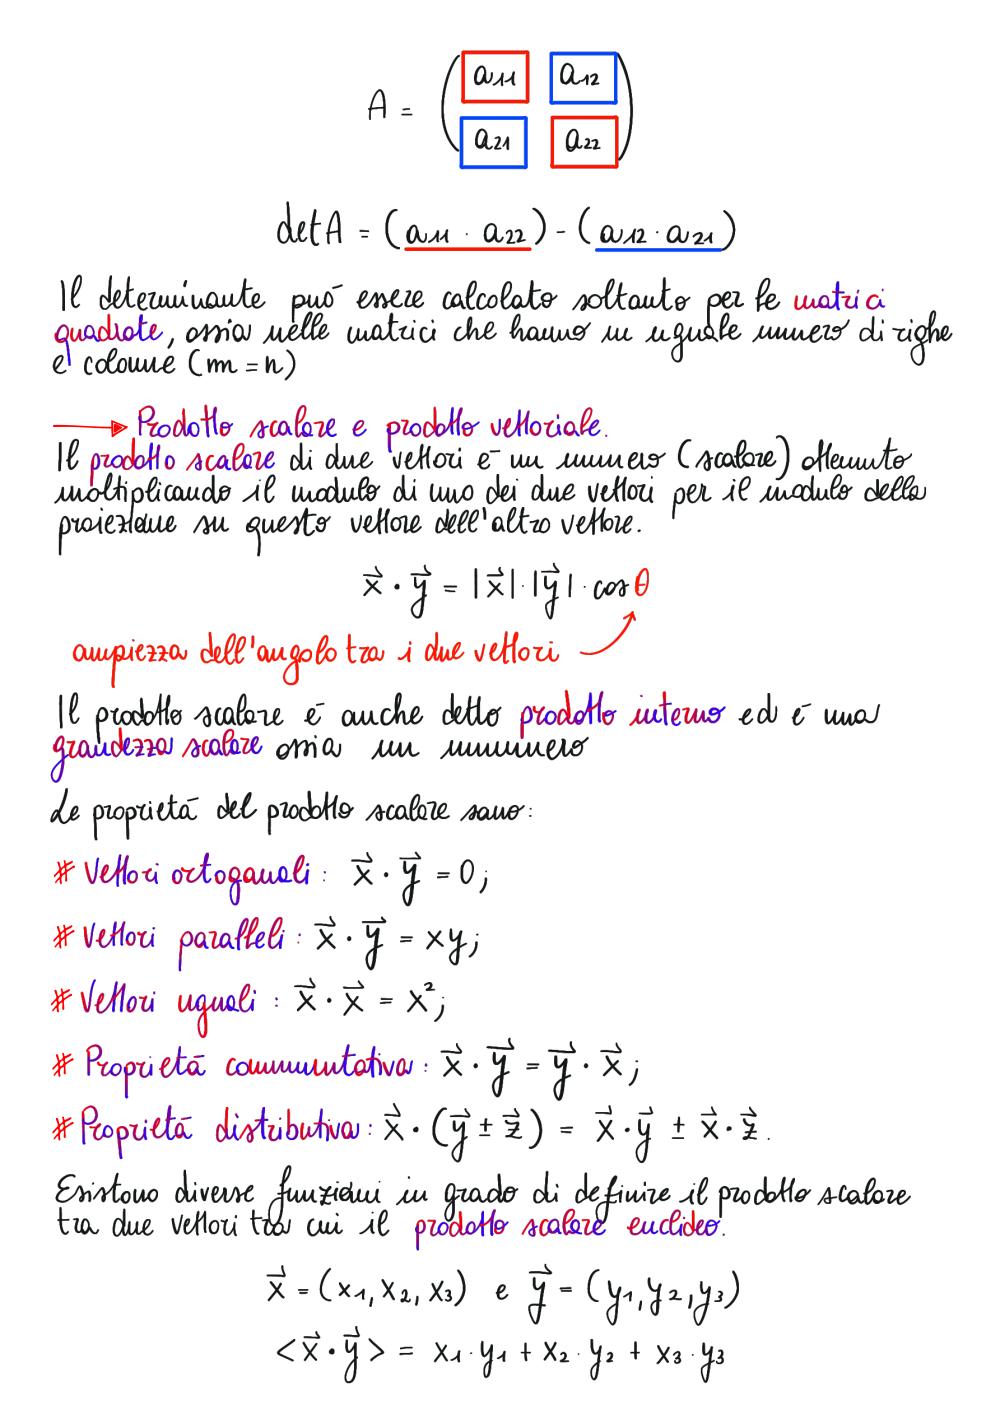 A = ( a11 a12
a21 a22 )
det A = (a11 · a22) - (a12 · a21)
Il determinante può essere calcolato soltanto per le matrici
quadrate, ossia nelle matrici che hanno un uguale numero di righe
e colonne (m = n)
Prodotto scalare e prodotto vettoriale.
Il prodotto scalare di due vettori è un numero (scalare) ottenuto
moltiplicando il modulo di uno dei due vettori per il modulo della
proiezione su questo vettore dell'altro vettore.
x⃗ · y⃗ = |x⃗| · |y⃗| · cos θ
ampiezza dell'angolo tra i due vettori
Il prodotto scalare è anche detto prodotto interno ed è una
grandezza scalare ossia un numero
Le proprietà del prodotto scalare sono:
# Vettori ortogonali: x⃗ · y⃗ = 0;
# Vettori paralleli: x⃗ · y⃗ = xy;
# Vettori uguali: x⃗ · x⃗ = x²;
# Proprietà commutativa: x⃗ · y⃗ = y⃗ · x⃗;
# Proprietà distributiva: x⃗ · (y⃗ ± z⃗) = x⃗ · y⃗ ± x⃗ · z⃗.
Esistono diverse funzioni in grado di definire il prodotto scalare
tra due vettori tra cui il prodotto scalare euclideo.
x⃗ = (x1, x2, x3) e y⃗ = (y1, y2, y3)
<x⃗ · y⃗> = x1 · y1 + x2 · y2 + x3 · y3